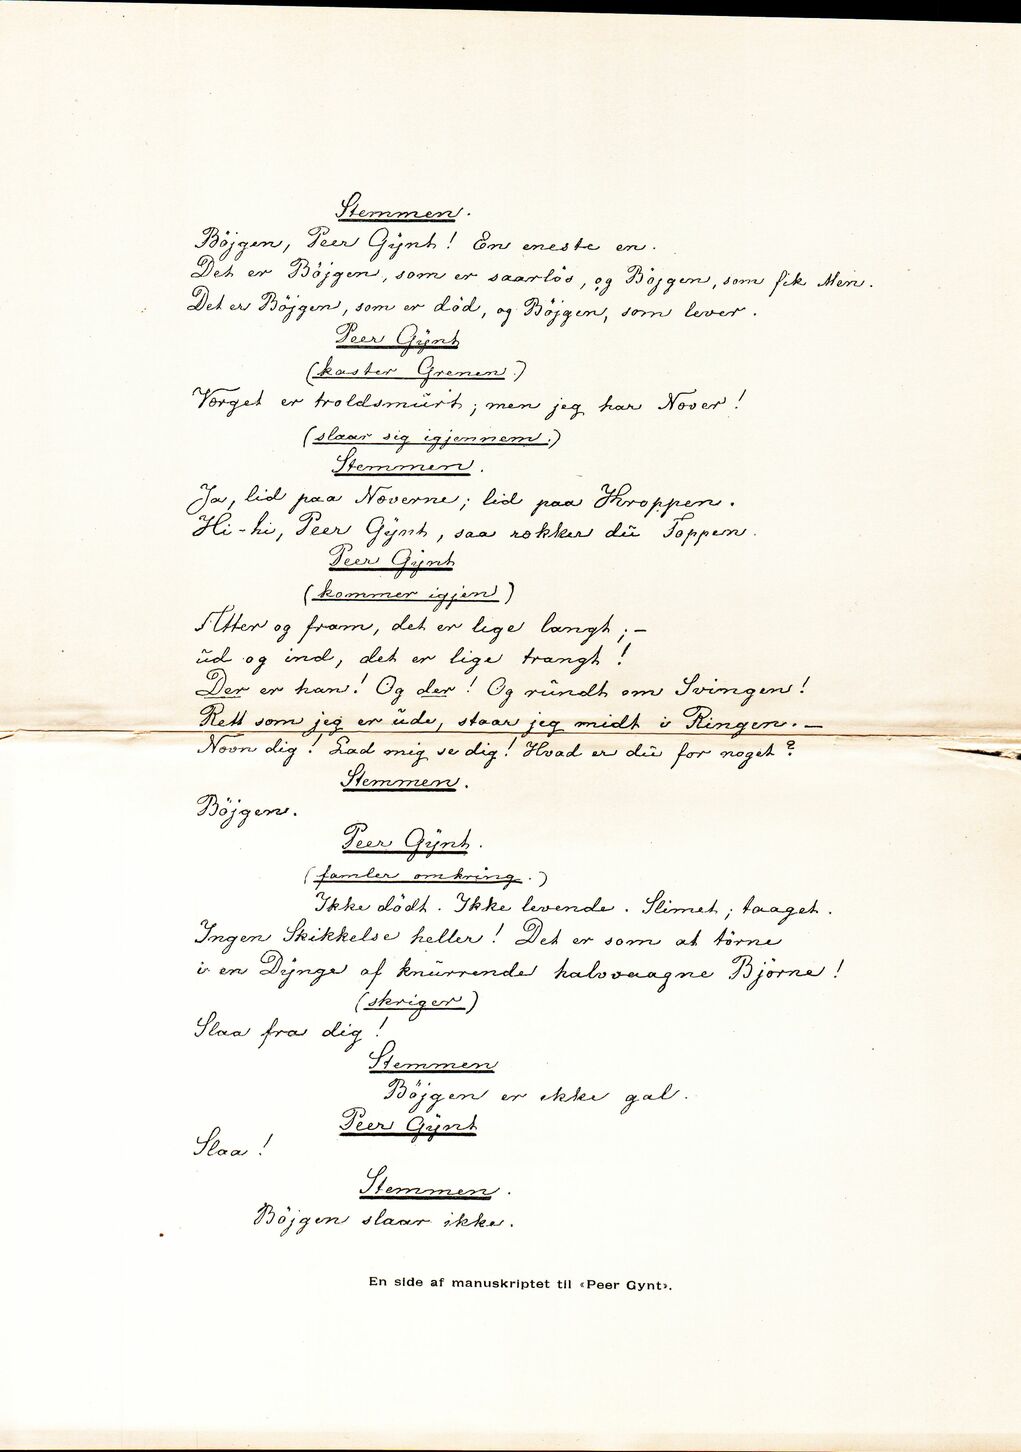 Stemmen.
Böjgen, Peer Gÿnt! En eneste en.
Det er Böjgen, som er saarlös, og Böjgen, som fik Men.
Det er Böjgen, som er död, og Böjgen, som lever.
Peer Gÿnt
(kaster Grenen.)
Værget er troldsmürt; men jeg har Næver!
(slaar sig igjennem.)
Stemmen.
Ja, lid paa Næverne; lid paa Kroppen.
Hi-hi, Peer Gÿnt, saa rækker dü Toppen.
Peer Gÿnt
(kommer igjen)
Atter og fram, det er lige langt; —
üd og ind, det er lige trangt!
Der er han! Og der! Og ründt om Svingen!
Rett som jeg er üde, staar jeg midt i Ringen. —
Nævn dig! Lad mig se dig! Hvad er dü for noget?
Stemmen.
Böjgen.
Peer Gÿnt.
(famler omkring.)
Ikke dödt. Ikke levende. Slimet; taaget.
Ingen Skikkelse heller! Det er som at törne
i en Dÿnge af knürrende halvvaagne Björne!
(skriger)
Slaa fra dig!
Stemmen
Böjgen er ikke gal.
Peer Gÿnt
Slaa!
Stemmen.
Böjgen slaar ikke.
En side af manuskriptet til «Peer Gynt».